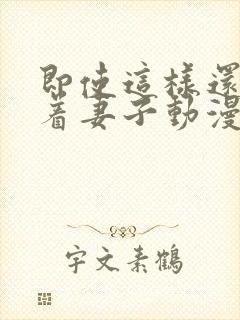 即使這樣還
着妻子動漫
宇文素鶴